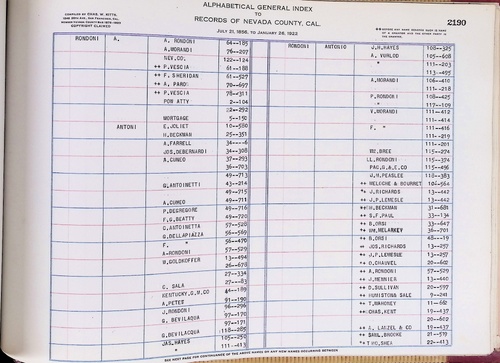 COMPILED BY CHAS. W. KITTS,
COPYRIGHT CLAIMED
ALPHABETICAL GENERAL INDEX
TO
RECORDS OF NEVADA COUNTY, CAL.
JULY 21, 1856, TO JANUARY 28, 1922
2190
RONDONI A. A. RONDONI 64-105
A.MORANDI 76-207
NEV.CO. 122-124
++ P.VESCIA 61-188
++ F. SHERIDAN 61-527
++ A. PARDI 70-697
++ P.VESCIA 78-311
POW ATTY 2-104
22-292
MORTGAGE 5-150
ANTONI E.JOLIET 10-580
H.BECKMAN 25-351
A.FARRELL 34---6
JOS.DEBERNARDI 34-308
A.CUNEO 37-293
36-703
49-713
G.ANTOINETTI 43-214
49-715
A.CUNEO 49-711
P.DEGREGORE 49-716
F.G.BEATTY 49-720
C.ANTOINETTA 57-528
G.DELLAPIAZZA 56-569
F. " 56-470
A-RONDONI 57-529
W.GOLDKOFFER 13-494
26-678
27-334
C. SALA 27--83
KENTUCKY.G.M.CO 44-189
A.PETES 91-190
J.RONDONI 96-296
G. BEVILAQUA 97-170
97-171
G.BEVILACQUA 118-205
JAS.HAYES 105-250
" 111-413
RONDONI ANTONIO J.H.HAYES 105-325
A. VURLOD 105-608
" 111-203
113-495
A.MORANDI 106-410
111-218
P.RONDONI 108-425
" 117-109
V.MORANDI 111-412
111-414
F. " 111-416
111-219
111-201
WM.BREE 115-274
LL.RONDONI 115-374
PAC.G.&.E.CO 115-496
J.H.PEASLEE 118-383
++ MELOCHE & BOURRET 104-564
++ J.RICHARDS 13-442
++ J.P.LEMESLE 13-442
++ H.BECKMAN 31-681
++ S.F.PAUL 33-134
++ B.ORSI 33-647
++ WM.MELARKEY 36-701
++ B.ORSI 48--19
++ JOS.RICHARDS 13-257
++ J.P.LEMESNE 13-257
++ O.CHAUVEL 20-602
++ A.RONDONI 57-529
++ J.MENNIER 13-440
++ D.SULLIVAN 20-597
++ HUMISTONS SALE 9-241
++ T.MAHONEY 11-662
++ CHAS.KENT 19-437
20-602
++ A. LANZEL & CO 19-437
++ SAML.BROOKE 21-579
++ THO.SHEA 22-413
SEE NEXT PAGE FOR CONTINUANCE OF THE ABOVE NAMES OR ANY NEW NAMES OCCURRING BETWEEN